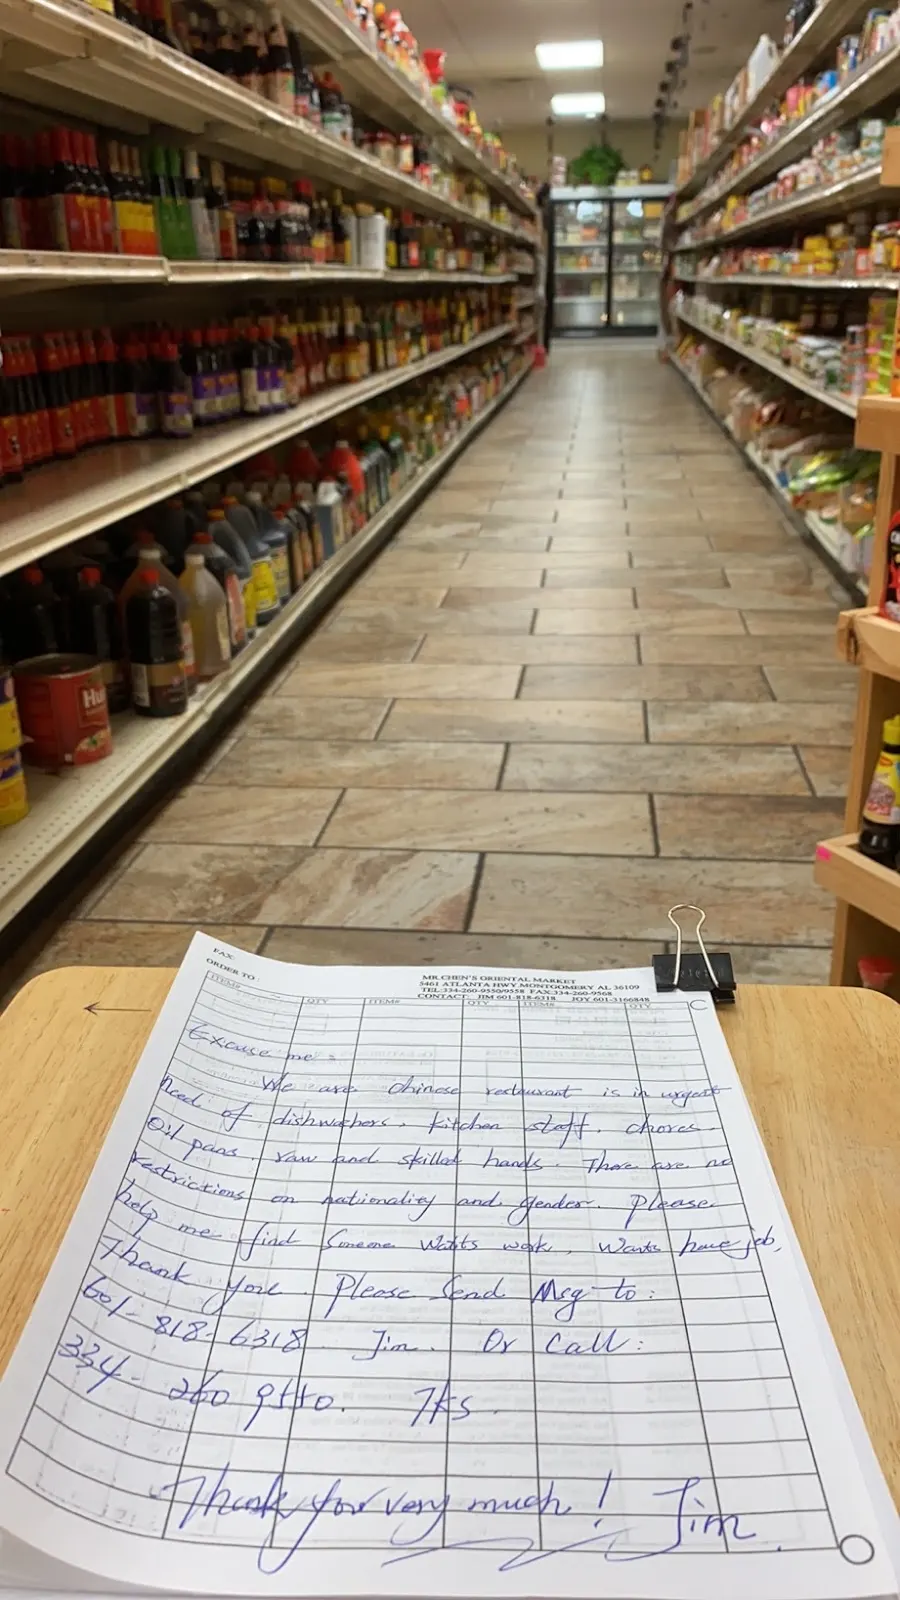 FAX:
ORDER TO :
MR.CHEN'S ORIENTAL MARKET
5461 ATLANTA HWY.MONTGOMERY AL 36109
TEL:334-260-9550/9558 FAX:334-260-9568
CONTACT: JIM 601-818-6318 JOY 601-3166848
ITEM# QTY ITEM# QTY ITEM# QTY
Excuse me :
We are chinese restaurant is in urgent
need of dishwashers. kitchen staff. chores.
Oil pans. raw and skilled hands. There are no
restrictions on nationality and gender. Please
help me find Someone wants work, Wants have job,
Thank you. Please Send Msg to:
601-818-6318 Jim. Or Call:
334-260 Tks.
Thank you very much! Jim
Hu